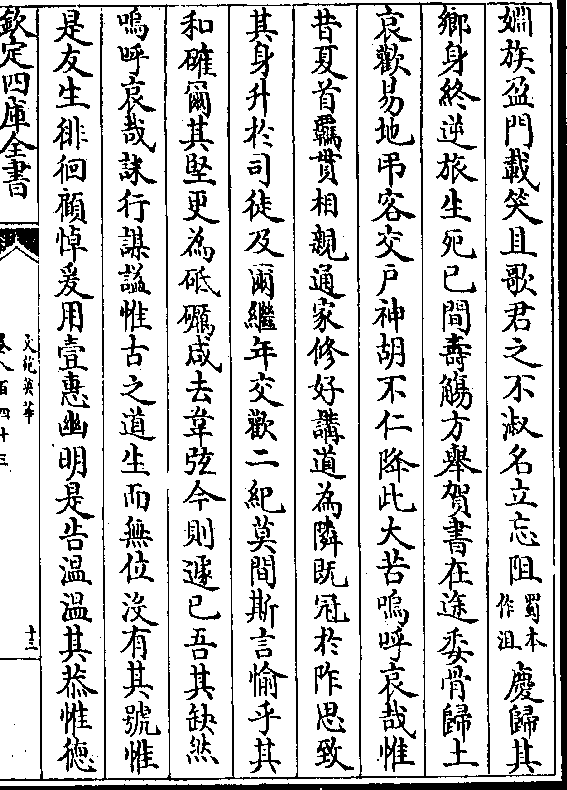 姻族盈門載笑且歌君之不淑名立忘阻蜀本作沮慶歸其
鄉身終逆旅生死已間壽觴方舉賀書在途委骨歸土
哀歡易地弔客交戶神胡不仁降此大苦嗚呼哀哉惟
昔夏首羈貫相親通家修好講道為隣既冠於阼思致
其身升於司徒及爾繼年交歡二紀莫間斯言愉乎其
和確爾其堅更為砥礪咸去韋弦今則遽已吾其缺然
嗚呼哀哉誄行謀謚惟古之道生而無位沒有其號惟
是友生徘徊顧悼爰用壹惠幽明是告溫溫其恭惟德
欽定四庫全書
文苑英華
卷八百四十三
十三